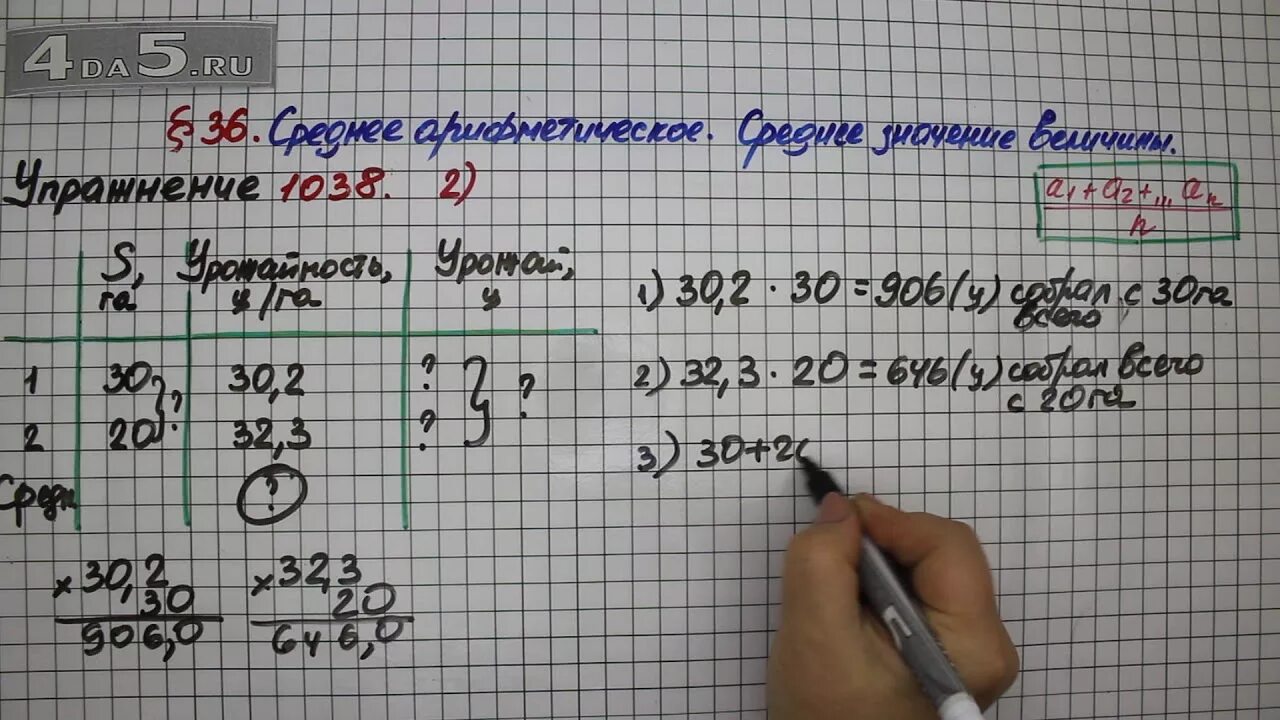 4DA5.RU
§ 36. Среднее арифметическое. Среднее значение величины.
Упражнение 1038. 2)
a₁ + a₂ + ... aₙ
n
S, га
Урожайность, ц/га
Урожай, ц
1 30 30,2 ?
2 20 32,3 ?
? ?
Средн ?
× 30,2
30
906,0
× 32,3
20
646,0
1) 30,2 · 30 = 906 (ц) собрал с 30га
всего
2) 32,3 · 20 = 646 (ц) собрал всего
с 20 га
3) 30+20